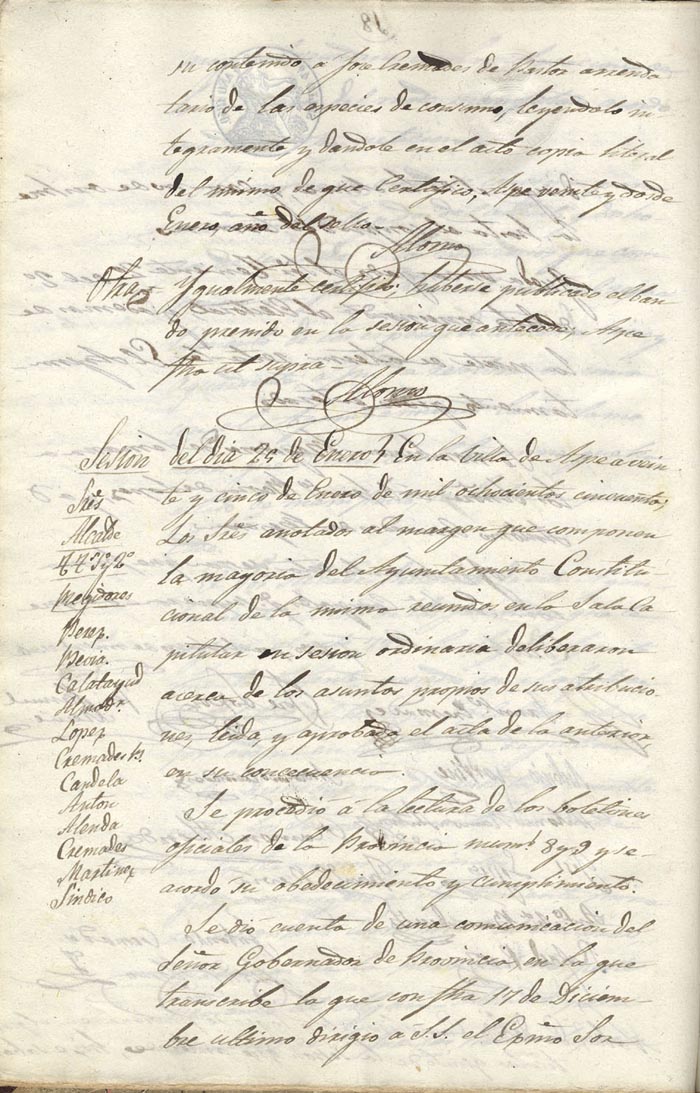 su contenido a José Cremades de Pastor arrenda
tario de las especies de consumo, leyendolo in
tegramente y dandole en el acto copia literal
del mismo de que Certifico, Aspe veinte y dos de
Enero, año del sello =
Alonso
Otra Ygualmente certifico; haberse publicado el ban
do prevenido en la sesion que antecede, Aspe
fha ut supra =
Alonso
Sesion del dia 25 de Enero } En la Villa de Aspe a vein
te y cinco de Enero de mil ochocientos cincuenta,
Los Sres anotados al margen que componen
la mayoria del Ayuntamiento Constitu
cional de la misma reunidos en la Sala Ca
pitular en sesion ordinaria deliberaron
acerca de los asuntos propios de sus atribucio
nes, leida, y aprobada el acta de la anterior,
en su concecuencia.
Sres
Alcalde
TT 1º y 2º
Regidores
Perez.
Bevia.
Calatayud
Almodr.
Lopez
Cremades B.
Candela
Anton
Alenda
Cremades
Martinez
Sindico
Se procedió á la lectura de los boletines
oficiales de la Provincia nums 8 y 9 y se
acordó su obedecimiento y cumplimiento.
Se dió cuenta de una comunicacion del
Señor Gobernador de Provincia en la que
transcribe la que con fha 17 de Diciem-
bre ultimo dirigio a S.S. el Exmo Sor